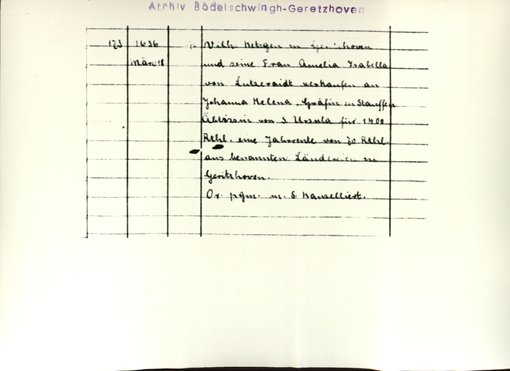 Archiv Bodelschwingh-Geretzhoven
173 1636 Wilh. Metzgen zu hoven
März 18 und seine Frau Amelia Isabella
von Lutzeraidt verkaufen an
Johanna Helena, Gräfin zu Stauffen
Äbtissin von S Ursula für 1400
Rthl. eine Jahrrente von 70 Rthl.
aus benannten Ländereien zu
Geritzhoven.
Or. pgm. m. S Kanselliert.